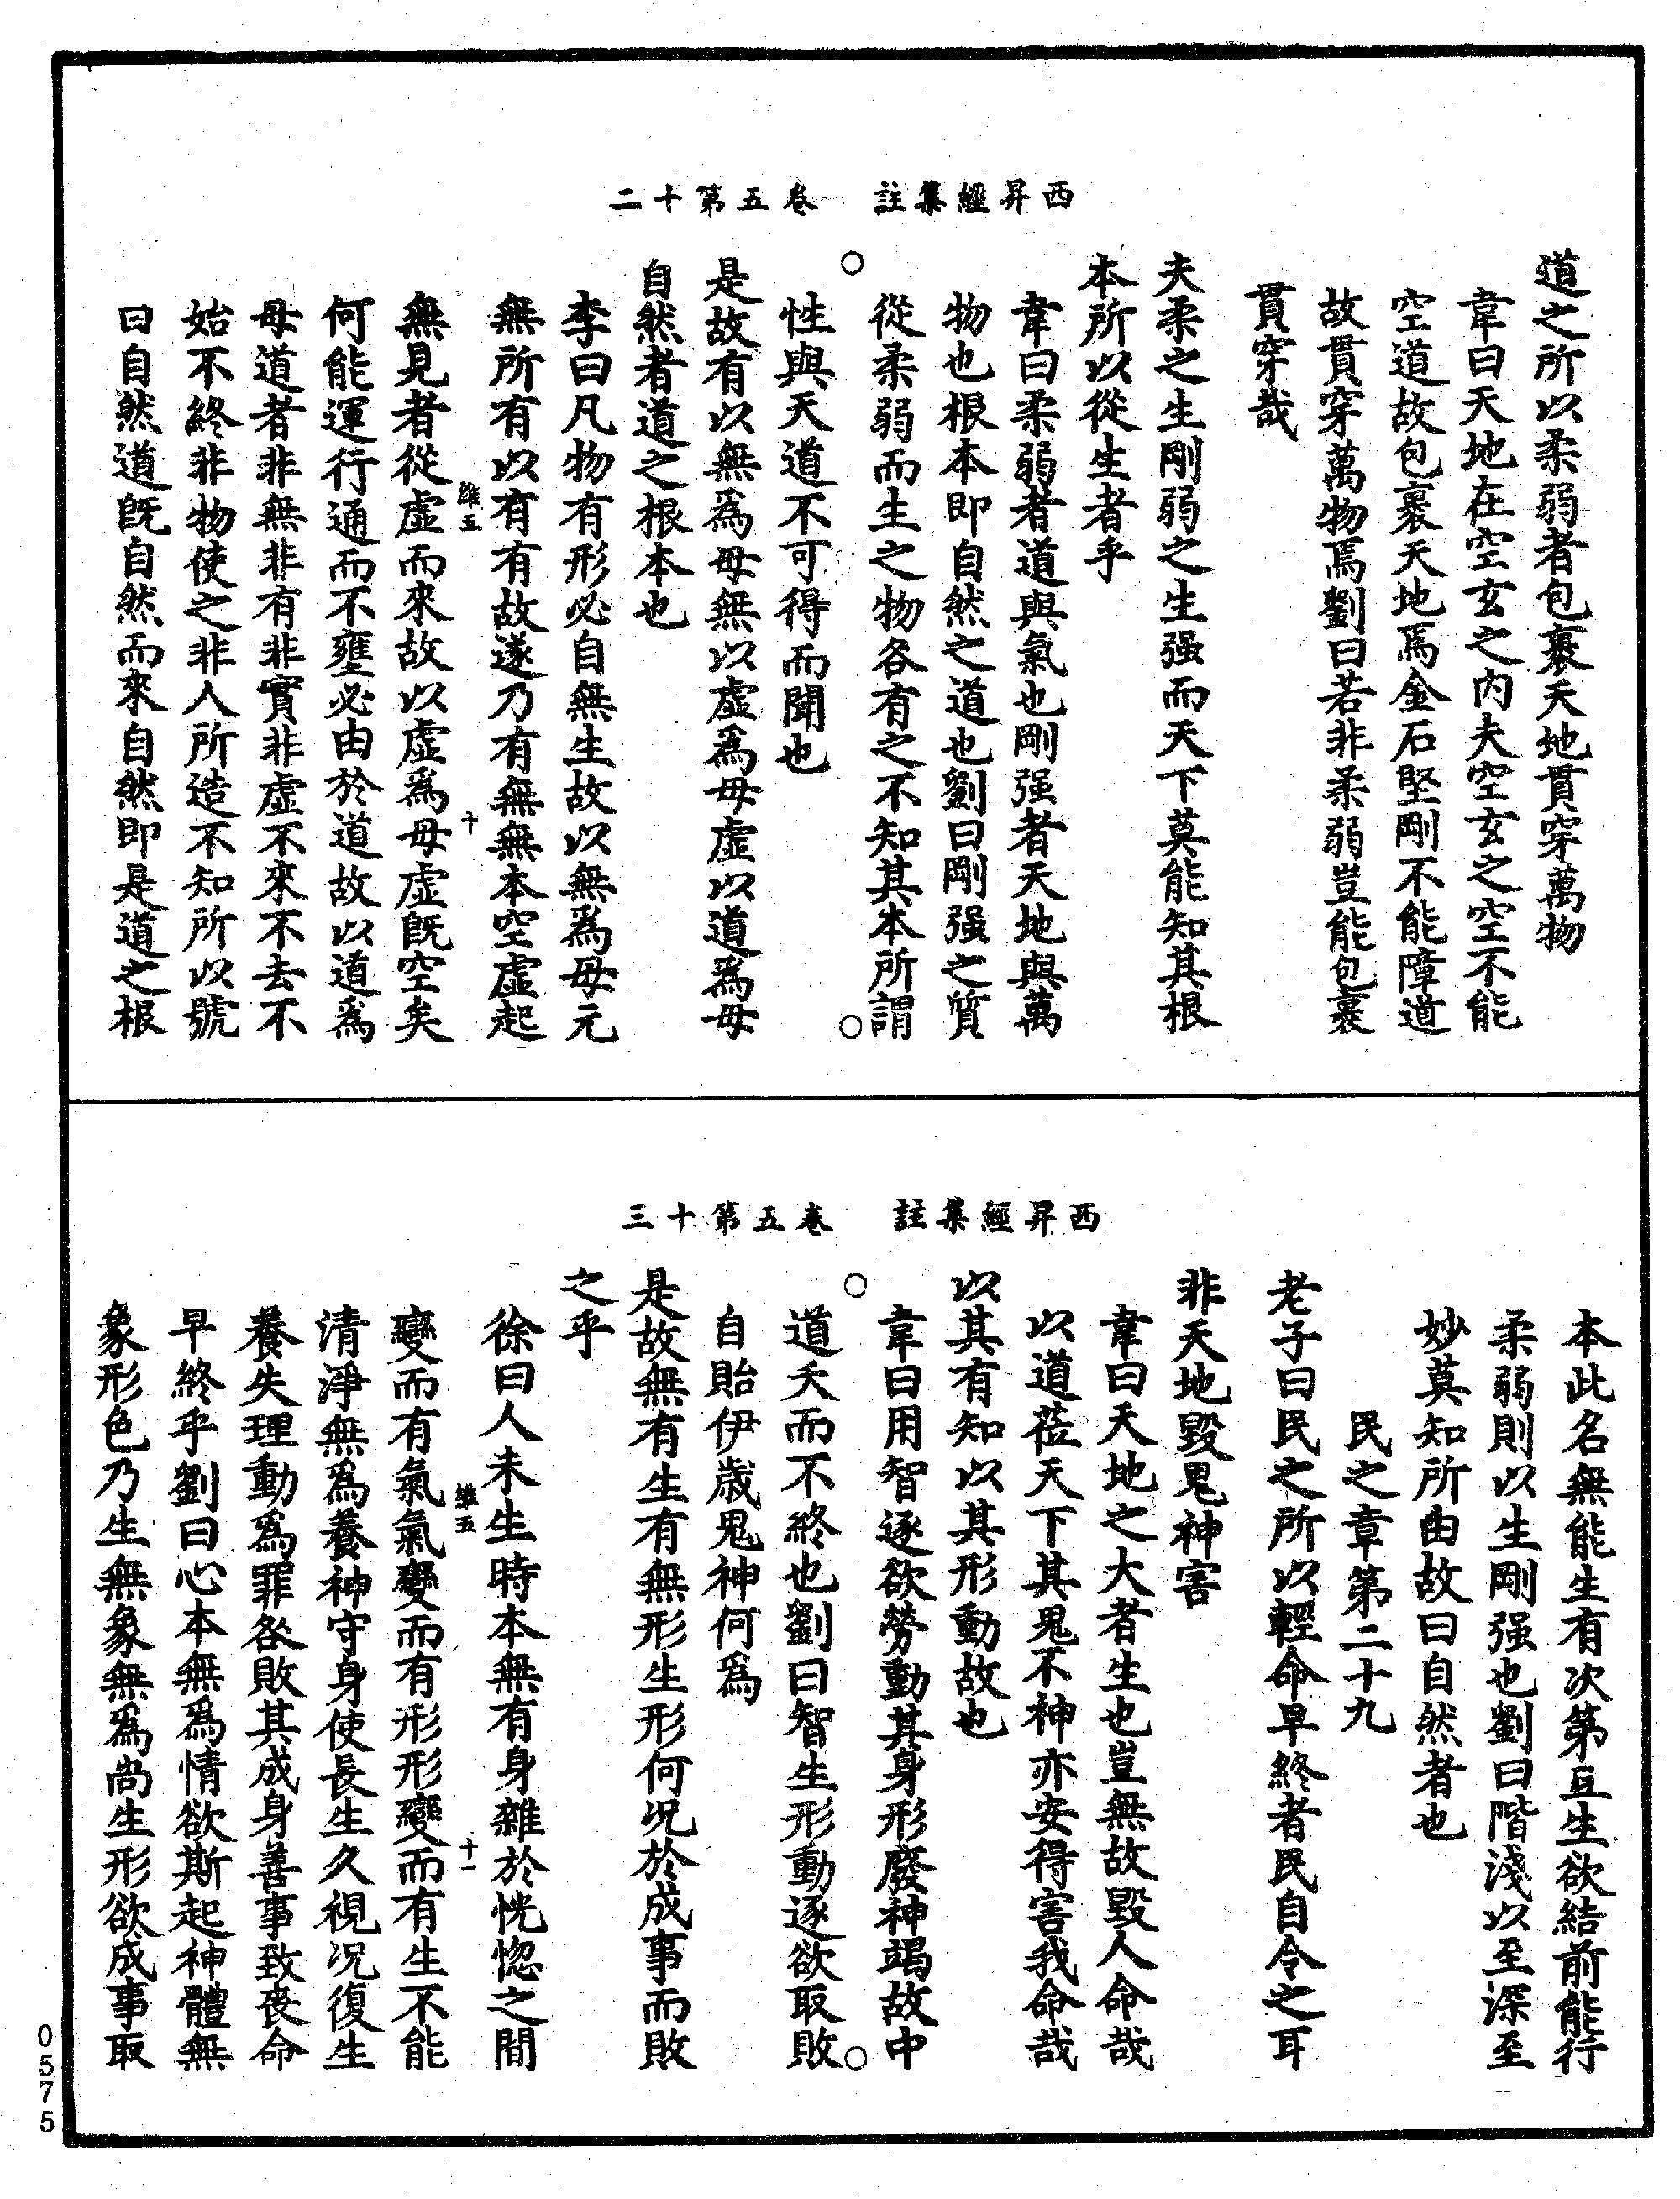 西昇經集註　卷五第十二
道之所以柔弱者包裹天地貫穿萬物
韋曰天地在空玄之內夫空玄之空不能
空道故包裹天地焉金石堅剛不能障道
故貫穿萬物焉劉曰若非柔弱豈能包裹
貫穿哉
夫柔之生剛弱之生强而天下莫能知其根
本所以從生者乎
韋曰柔弱者道與氣也剛强者天地與萬
物也根本即自然之道也劉曰剛强之質
從柔弱而生之物各有之不知其本所謂
性與天道不可得而聞也
是故有以無爲母無以虛爲母虛以道爲母
自然者道之根本也
李曰凡物有形必自無生故以無爲母元
無所有以有有故遂乃有無無本空虛起
維五　十
無見者從虛而來故以虛爲母虛旣空矣
何能運行通而不壅必由於道故以道爲
母道者非無非有非實非虛不來不去不
始不終非物使之非人所造不知所以號
曰自然道旣自然而來自然即是道之根
西昇經集註　卷五第十三
本此名無能生有次第亘生欲結前能行
柔弱則以生剛强也劉曰階淺以至深至
妙莫知所由故曰自然者也
民之章第二十九
老子曰民之所以輕命早終者民自令之耳
非天地毀鬼神害
韋曰天地之大者生也豈無故毀人命哉
以道莅天下其鬼不神亦安得害我命哉
以其有知以其形動故也
韋曰用智逐欲勞動其身形廢神竭故中
道夭而不終也劉曰智生形動逐欲取敗
自貽伊歲鬼神何爲
是故無有生有無形生形何況於成事而敗
之乎
徐曰人未生時本無有身雜於恍惚之間
維五　十一
變而有氣氣變而有形形變而有生不能
清淨無爲養神守身使長生久視況復生
養失理動爲罪咎敗其成身善事致喪命
早終乎劉曰心本無爲情欲斯起神體無
象形色乃生無象無爲尚生形欲成事取
0575